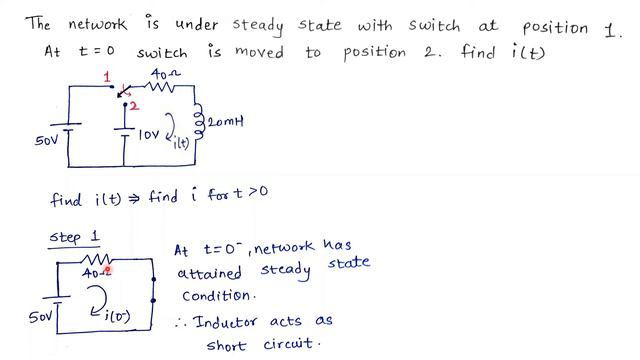 The network is under steady state with switch at position 1.
At t=0 switch is moved to position 2. find i(t)
1
40Ω
2
50V
10V
i(t)
20mH
find i(t) ⇒ find i for t>0
Step 1
40Ω
50V
i(0⁻)
At t=0⁻, network has
attained steady state
condition.
∴ Inductor acts as
short circuit.